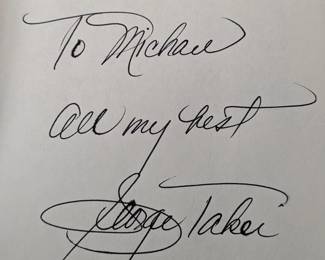 To Michael
all my best
George Takei